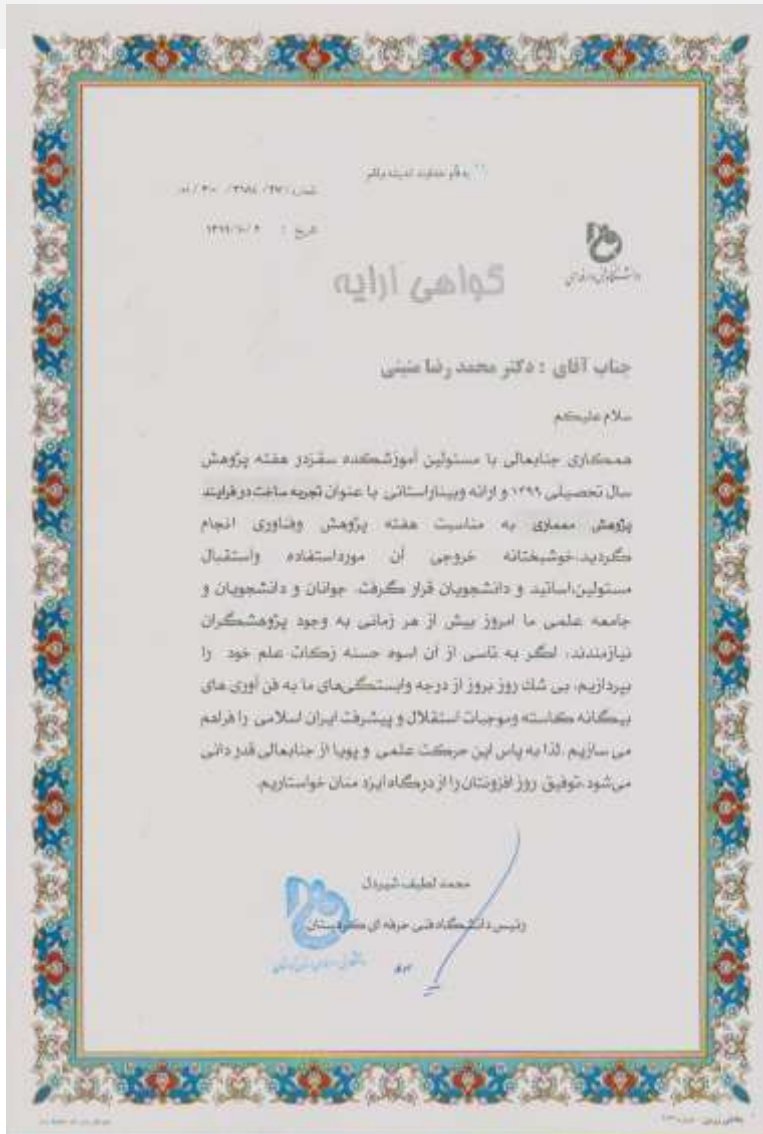 به نام خداوند اندیشه برتر
تاریخ :
گواهی ارایه
جناب آقای : دکتر محمد رضا متینی
سلام علیکم
همکاری جنابعالی با مسئولین آموزشکده سقزدر هفته پژوهش
سال تحصیلی ۱۳۹۹ و ارائه وبیناراستانی با عنوان تجربه ساخت در فرایند
پژوهش معماری به مناسبت هفته پژوهش وفناوری انجام
گردید.خوشبختانه خروجی آن مورداستفاده واستقبال
مسئولین،اساتید و دانشجویان قرار گرفت. جوانان و دانشجویان و
جامعه علمی ما امروز بیش از هر زمانی به وجود پژوهشگران
نیازمندند، اگر به تاسی از آن اسوه حسنه زکات علم خود را
بپردازیم، بی شك روز بروز از درجه وابستگی‌های ما به فن آوری های
بیگانه کاسته وموجبات استقلال و پیشرفت ایران اسلامی را فراهم
می سازیم .لذا به پاس این حرکت علمی و پویا از جنابعالی قدر دانی
می‌شود.توفیق روز افزونتان را از درگاه ایزد منان خواستاریم.
محمد لطیف شیردل
رئیس دانشگاه فنی حرفه ای کردستان